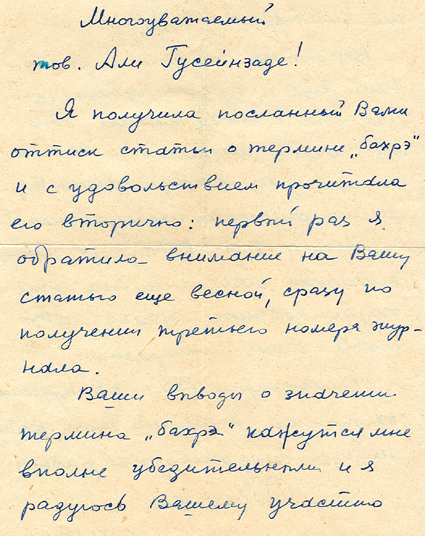 Многоуважаемый
тов. Али Гусейнзаде!
Я получила посланный Вами
оттиск статьи о термине „бахрэ“
и с удовольствием прочитала
его вторично: первый раз я
обратила внимание на Вашу
статью еще весной, сразу по
получении третьего номера жур-
нала.
Ваши выводы о значении
термина „бахрэ“ кажутся мне
вполне убедительными и я
радуюсь Вашему участию